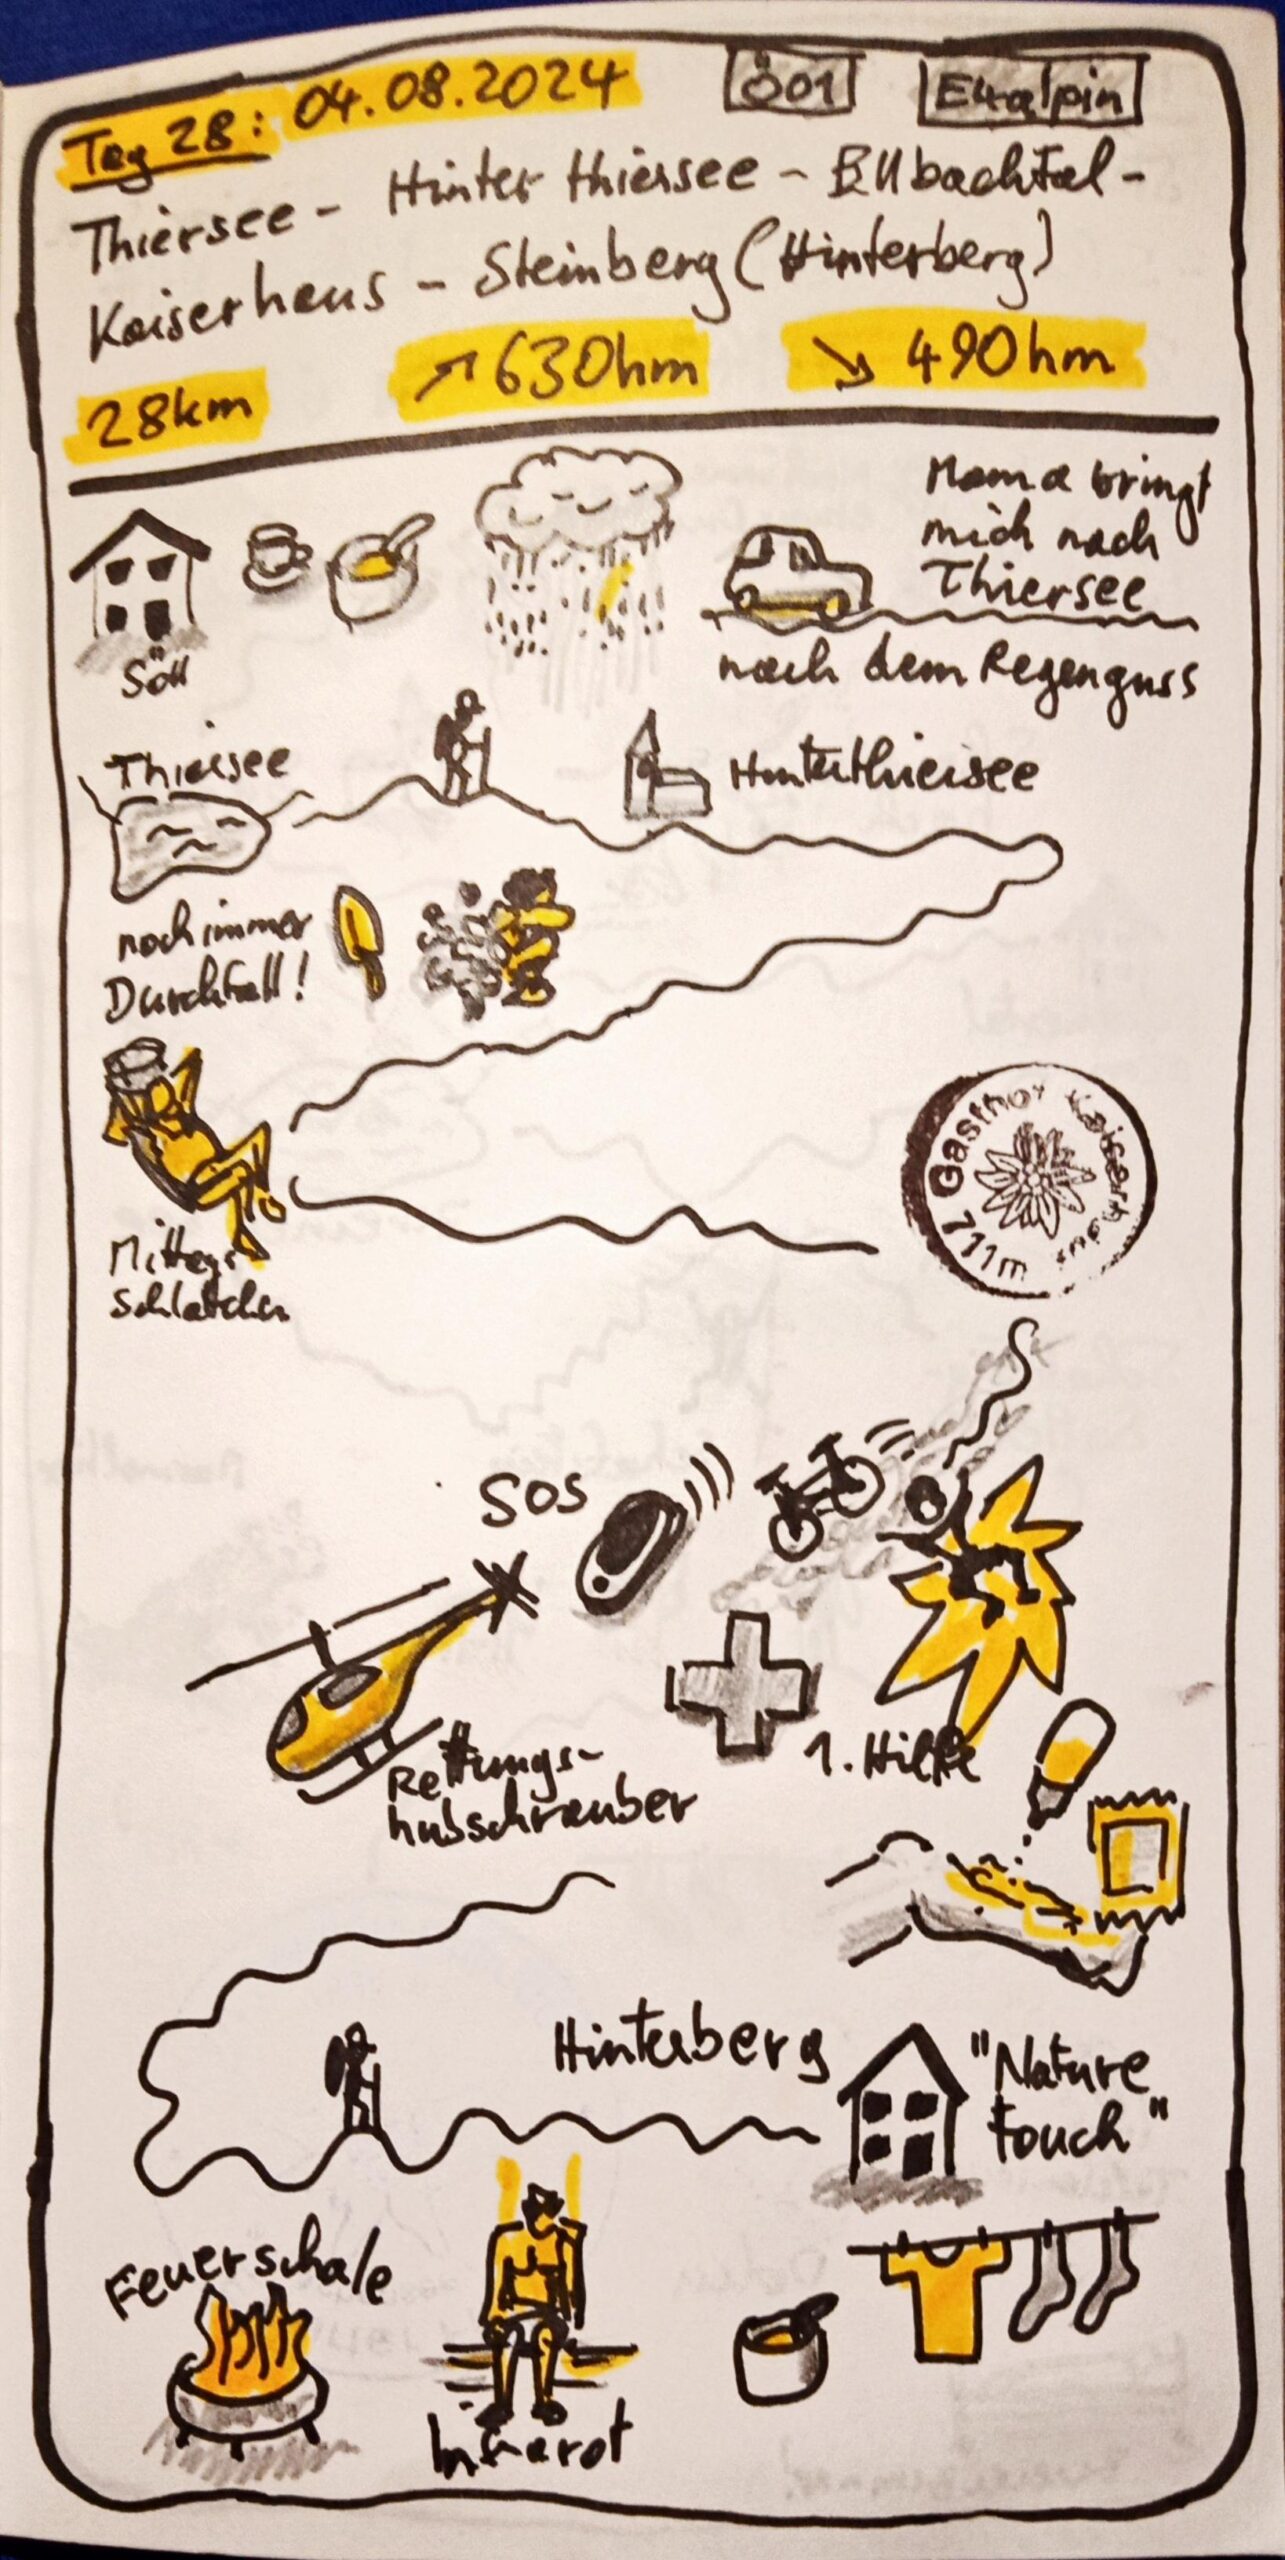 Tag 28: 04.08.2024
Ö01
E4alpin
Thiersee - Hinterthiersee - Ellbachtal -
Kaiserhaus - Steinberg (Hinterberg)
28km ↗ 630hm ↘ 490hm
Mama bringt
mich nach
Thiersee
nach dem Regenguss
Söll
Thiersee
Hinterthiersee
noch immer
Durchfall!
Mittags-
schläfchen
Gasthof Kaiserhaus
711m
SOS
Rettungs-
hubschrauber
1. Hilfe
Hinterberg
"Nature
Touch"
Feuerschale
Infrarot